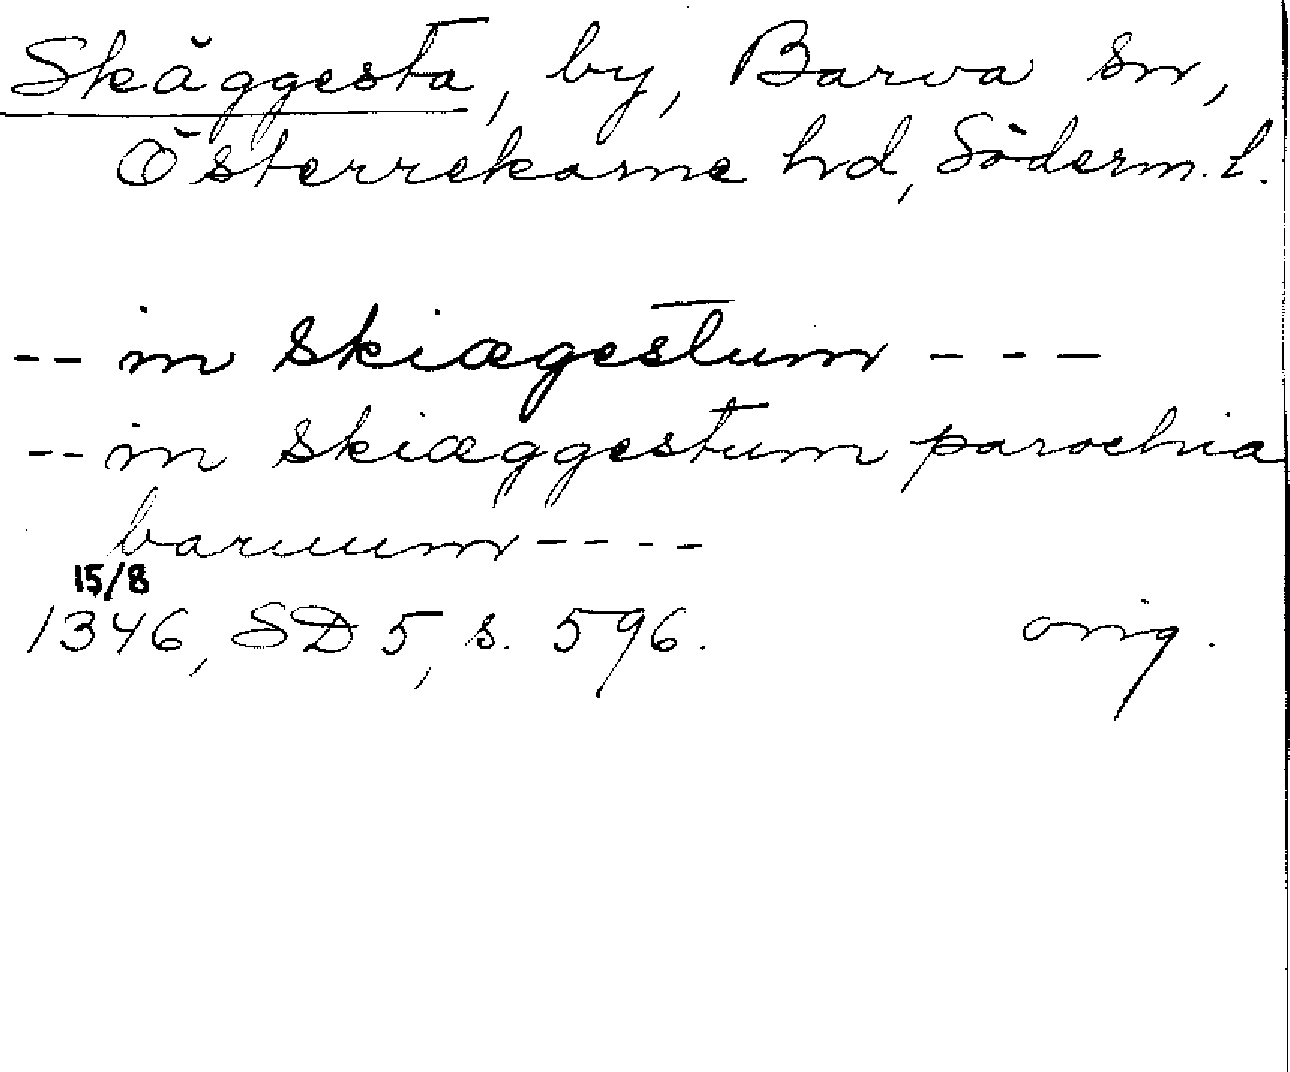 Skäggesta, by, Barva sn,
Österrekarne hd, Söderm. l.
-- in skiægestum - - -
-- in skiæggestum parochia
baruum - - - -
15/8
1346, SD 5, s. 596. orig.